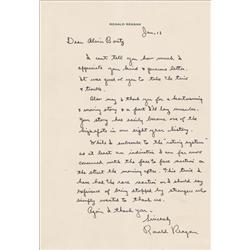 RONALD REAGAN
Jan. 13
Dear Alvin
I can't tell you how much I
appreciate your kind & generous letter.
It was good of you to take the time
& trouble.
Also may I thank you for a heartwarming
& moving story & a fact I'll long remember.
Your story has easily become one of the
highspots in our eight year history.
While I subscribe to the "rating system"
as at least an indicator I am far more
concerned with the face to face reaction on
the street the morning after. This time I
have had the rare reaction and
experience of being stopped by strangers who
simply wanted to thank us.
Again I thank you.
Sincerely
Ronald Reagan